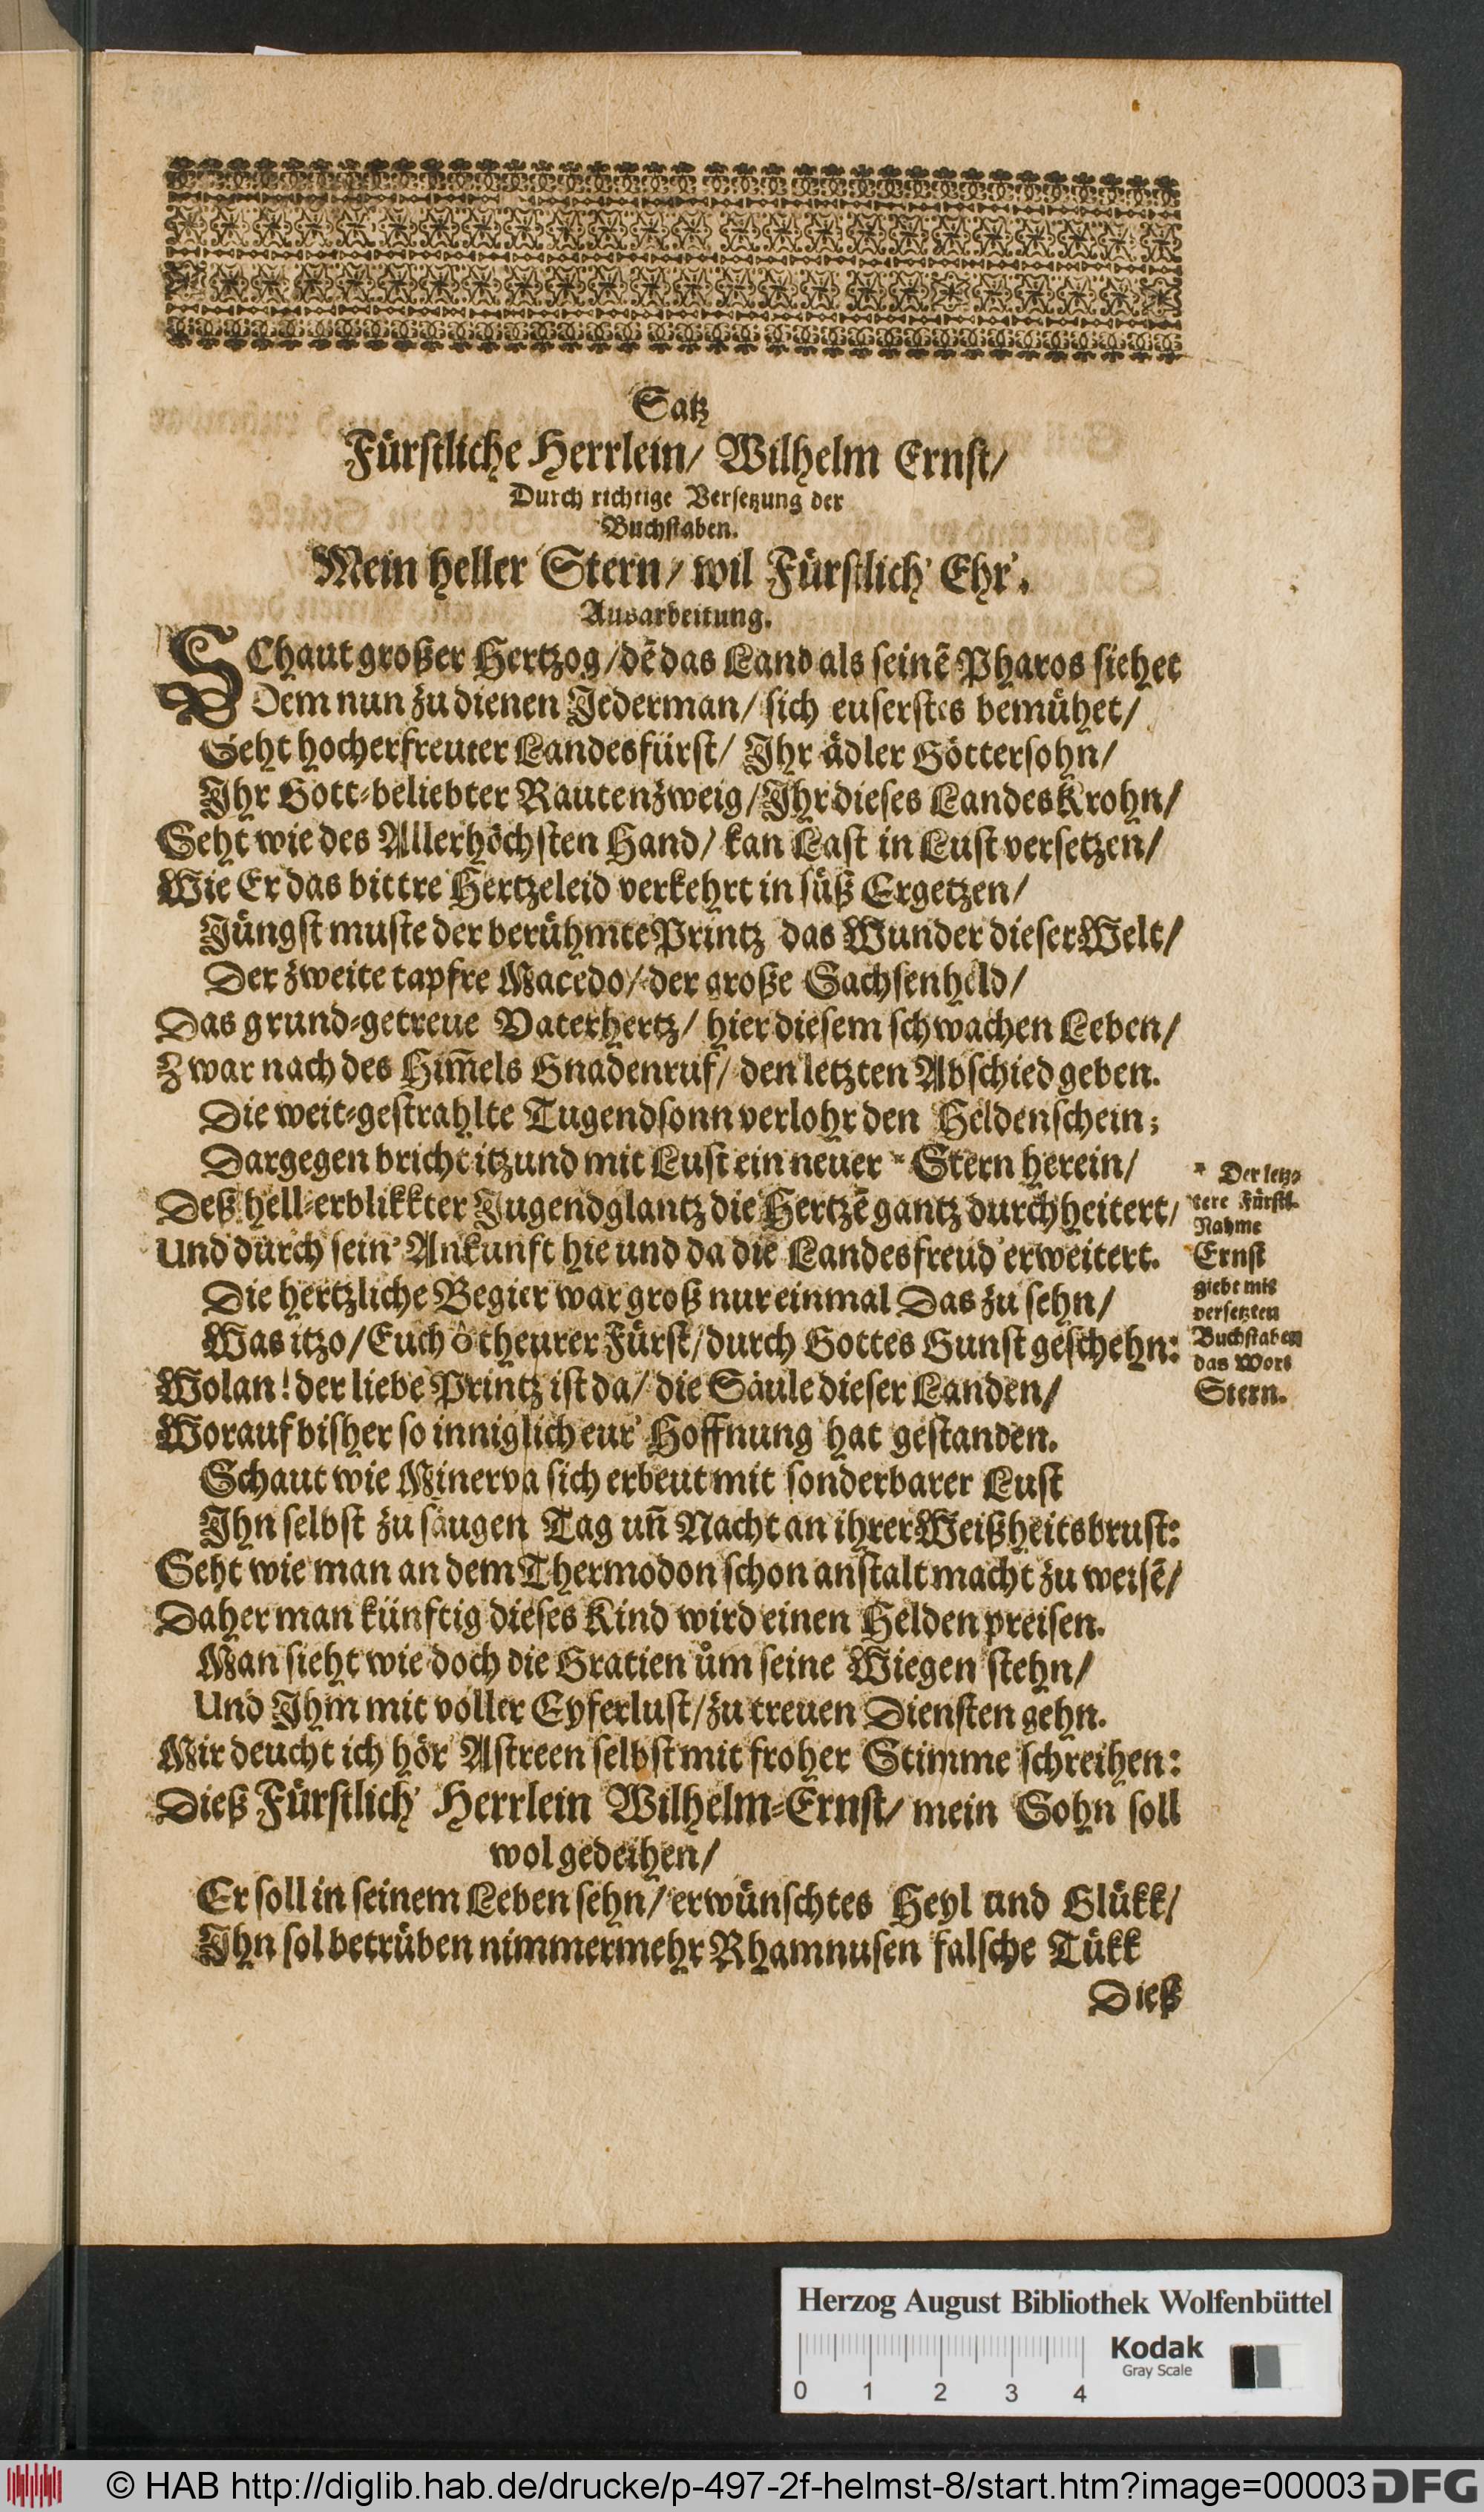 Satz
Fürstliche Herrlein/ Wilhelm Ernst/
Durch richtige Versetzung der
Buchstaben.
Mein heller Stern/ wil Fürstlich' Ehr'.
Ausarbeitung.
SChaut großer Hertzog/dē das Land als seinē Pharos siehet
Dem nun zu dienen Jederman/ sich euserstes bemühet/
Seht hocherfreuter Landesfürst/ Ihr ädler Göttersohn/
Ihr Gott-beliebter Rautenzweig/Ihr dieses Landes Krohn/
Seht wie des Allerhöchsten Hand/ kan Last in Lust versetzen/
Wie Er das bittre Hertzeleid verkehrt in süß Ergetzen/
Jüngst muste der berühmte Printz das Wunder dieser Welt/
Der zweite tapfre Macedo/ der große Sachsenheld/
Das grund-getreue Vaterhertz/ hier diesem schwachen Leben/
Zwar nach des Him̄els Gnadenruf/ den letzten Abschied geben.
Die weit-gestrahlte Tugendsonn verlohr den Heldenschein;
Dargegen bricht itzund mit Lust ein neuer * Stern herein/
Deß hell-erblikkter Jugendglantz die Hertzē gantz durchheitert/
Und durch sein' Ankunft hie und da die Landesfreud' erweitert.
Die hertzliche Begier war groß nur einmal Das zu sehn/
Was itzo/Euch ô theurer Fürst/durch Gottes Gunst geschehn:
Wolan! der liebe Printz ist da/ die Säule dieser Landen/
Worauf bisher so inniglich eur' Hoffnung hat gestanden.
Schaut wie Minerva sich erbeut mit sonderbarer Lust
Ihn selbst zu säugen Tag un̄ Nacht an ihrer Weißheitsbrust:
Seht wie man an dem Thermodon schon anstalt macht zu weisē/
Daher man künftig dieses Kind wird einen Helden preisen.
Man sieht wie doch die Gratien üm seine Wiegen stehn/
Und Ihm mit voller Eyferlust/zu treuen Diensten gehn.
Mir deucht ich hör' Astreen selbst mit froher Stimme schreihen:
Dieß Fürstlich' Herrlein Wilhelm-Ernst/ mein Sohn soll
wol gedeihen/
Er soll in seinem Leben sehn/ erwünschtes Heyl und Glükk/
Ihn sol betrüben nimmermehr Rhamnusen falsche Tükk
Dieß
* Der letz-
tere Fürstl.
Nahme
Ernst
giebt mit
versetzten
Buchstaben
das Wort
Stern.
Herzog August Bibliothek Wolfenbüttel
Kodak
Gray Scale
0 1 2 3 4
© HAB http://diglib.hab.de/drucke/p-497-2f-helmst-8/start.htm?image=00003 DFG